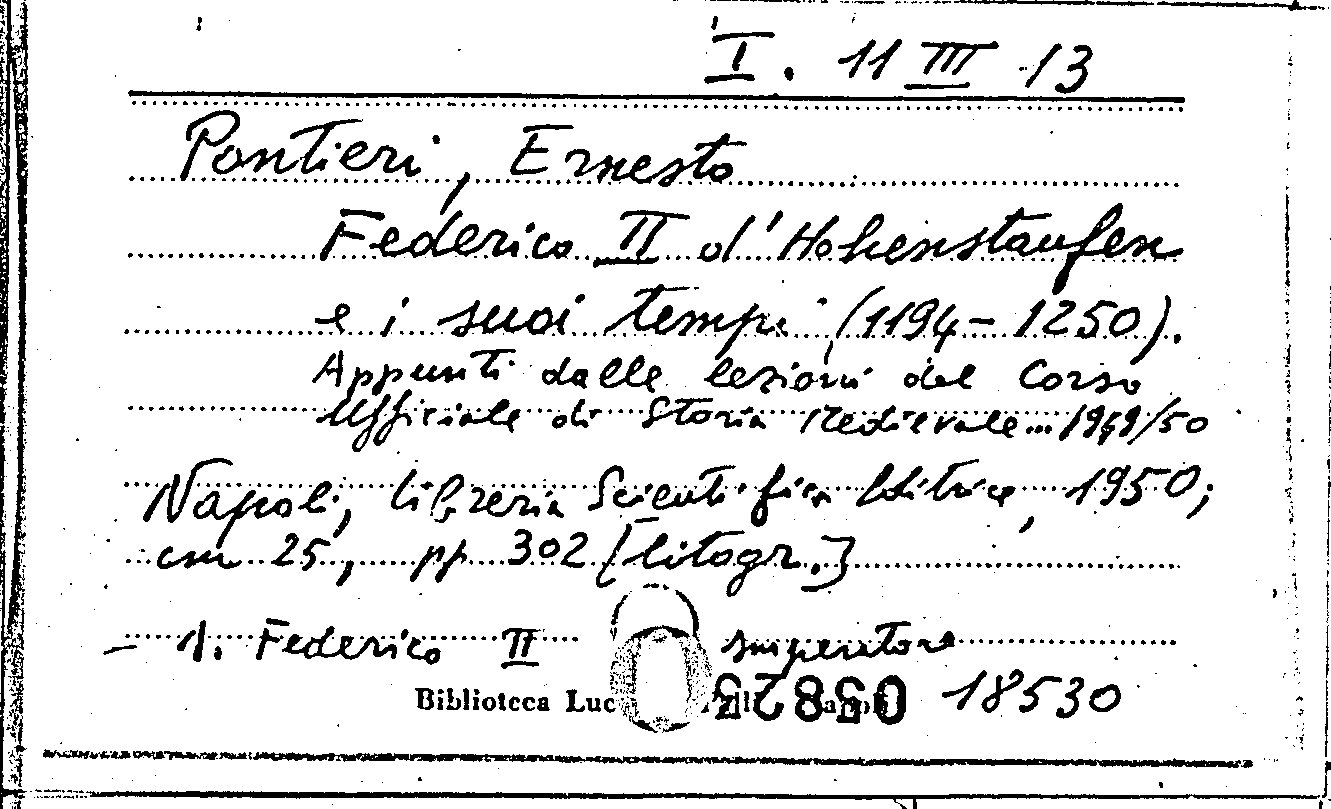 I. 11 III 13
Pontieri, Ernesto
Federico II d'Hohenstaufen
e i suoi tempi (1194-1250).
Appunti dalle lezioni del Corso
Ufficiale di Storia Medievale... 1949/50
Napoli, Libreria Scientifica Editrice, 1950;
cm 25, pp 302 [litogr.]
- 1. Federico II imperatore
Biblioteca Luc
18530